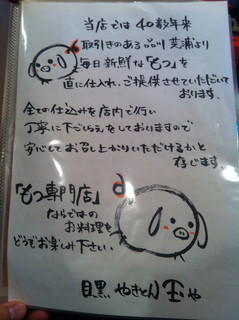 当店では 40数年来
取引きのある 品川 芝浦より
毎日 新鮮な "もつ"を
直に仕入れ、ご提供させていただいて
おります。
全ての仕込みを店内で行い
丁寧に下ごしらえをしておりますので
安心してお召し上がりいただけるかと
存じます。
「もつ専門店」
ならではの
お料理を
どうぞお楽しみ下さい。
目黒 やきとん 玉や